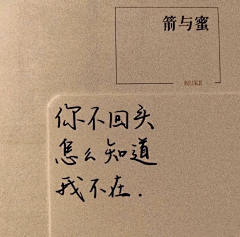 箭与蜜
NUKE
你不回头
怎么知道
我不在.